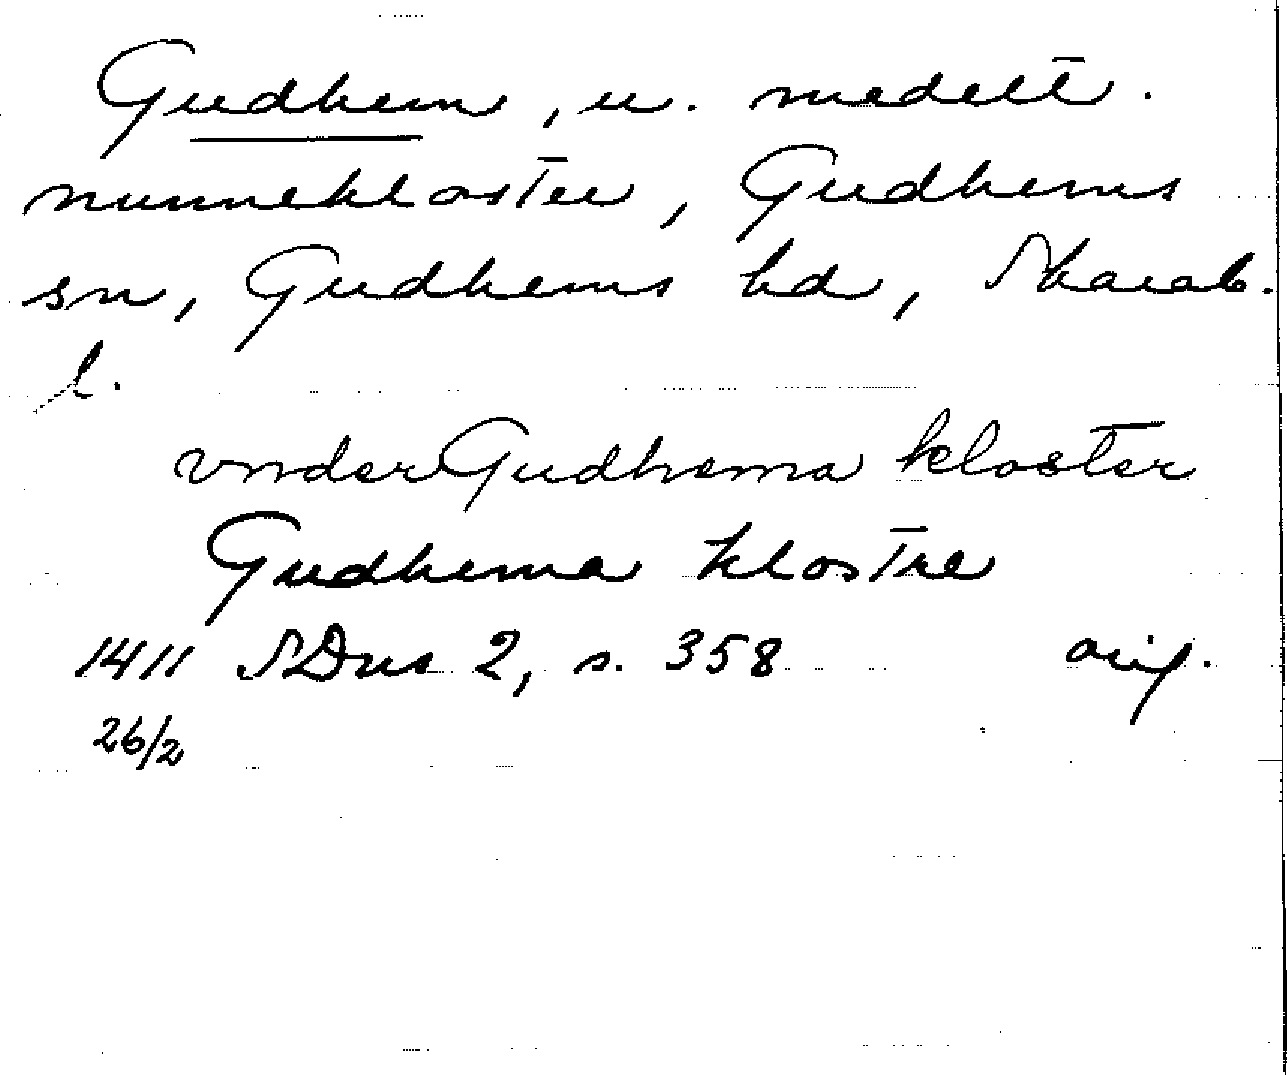 Gudhem, u. medelt.
nunnekloster, Gudhems
sn, Gudhems hd, Skarab.
l.
vnder Gudhema kloster
Gudhema klostre
1411 SDns 2, s. 358 orig.
26/2